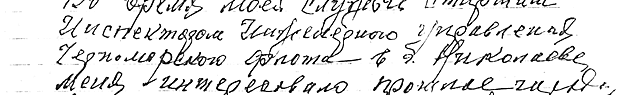 Во время моей службы старшим
Инспектором Инженерного Управления
Черноморского флота в г. Николаеве,
меня интересовало прошлое